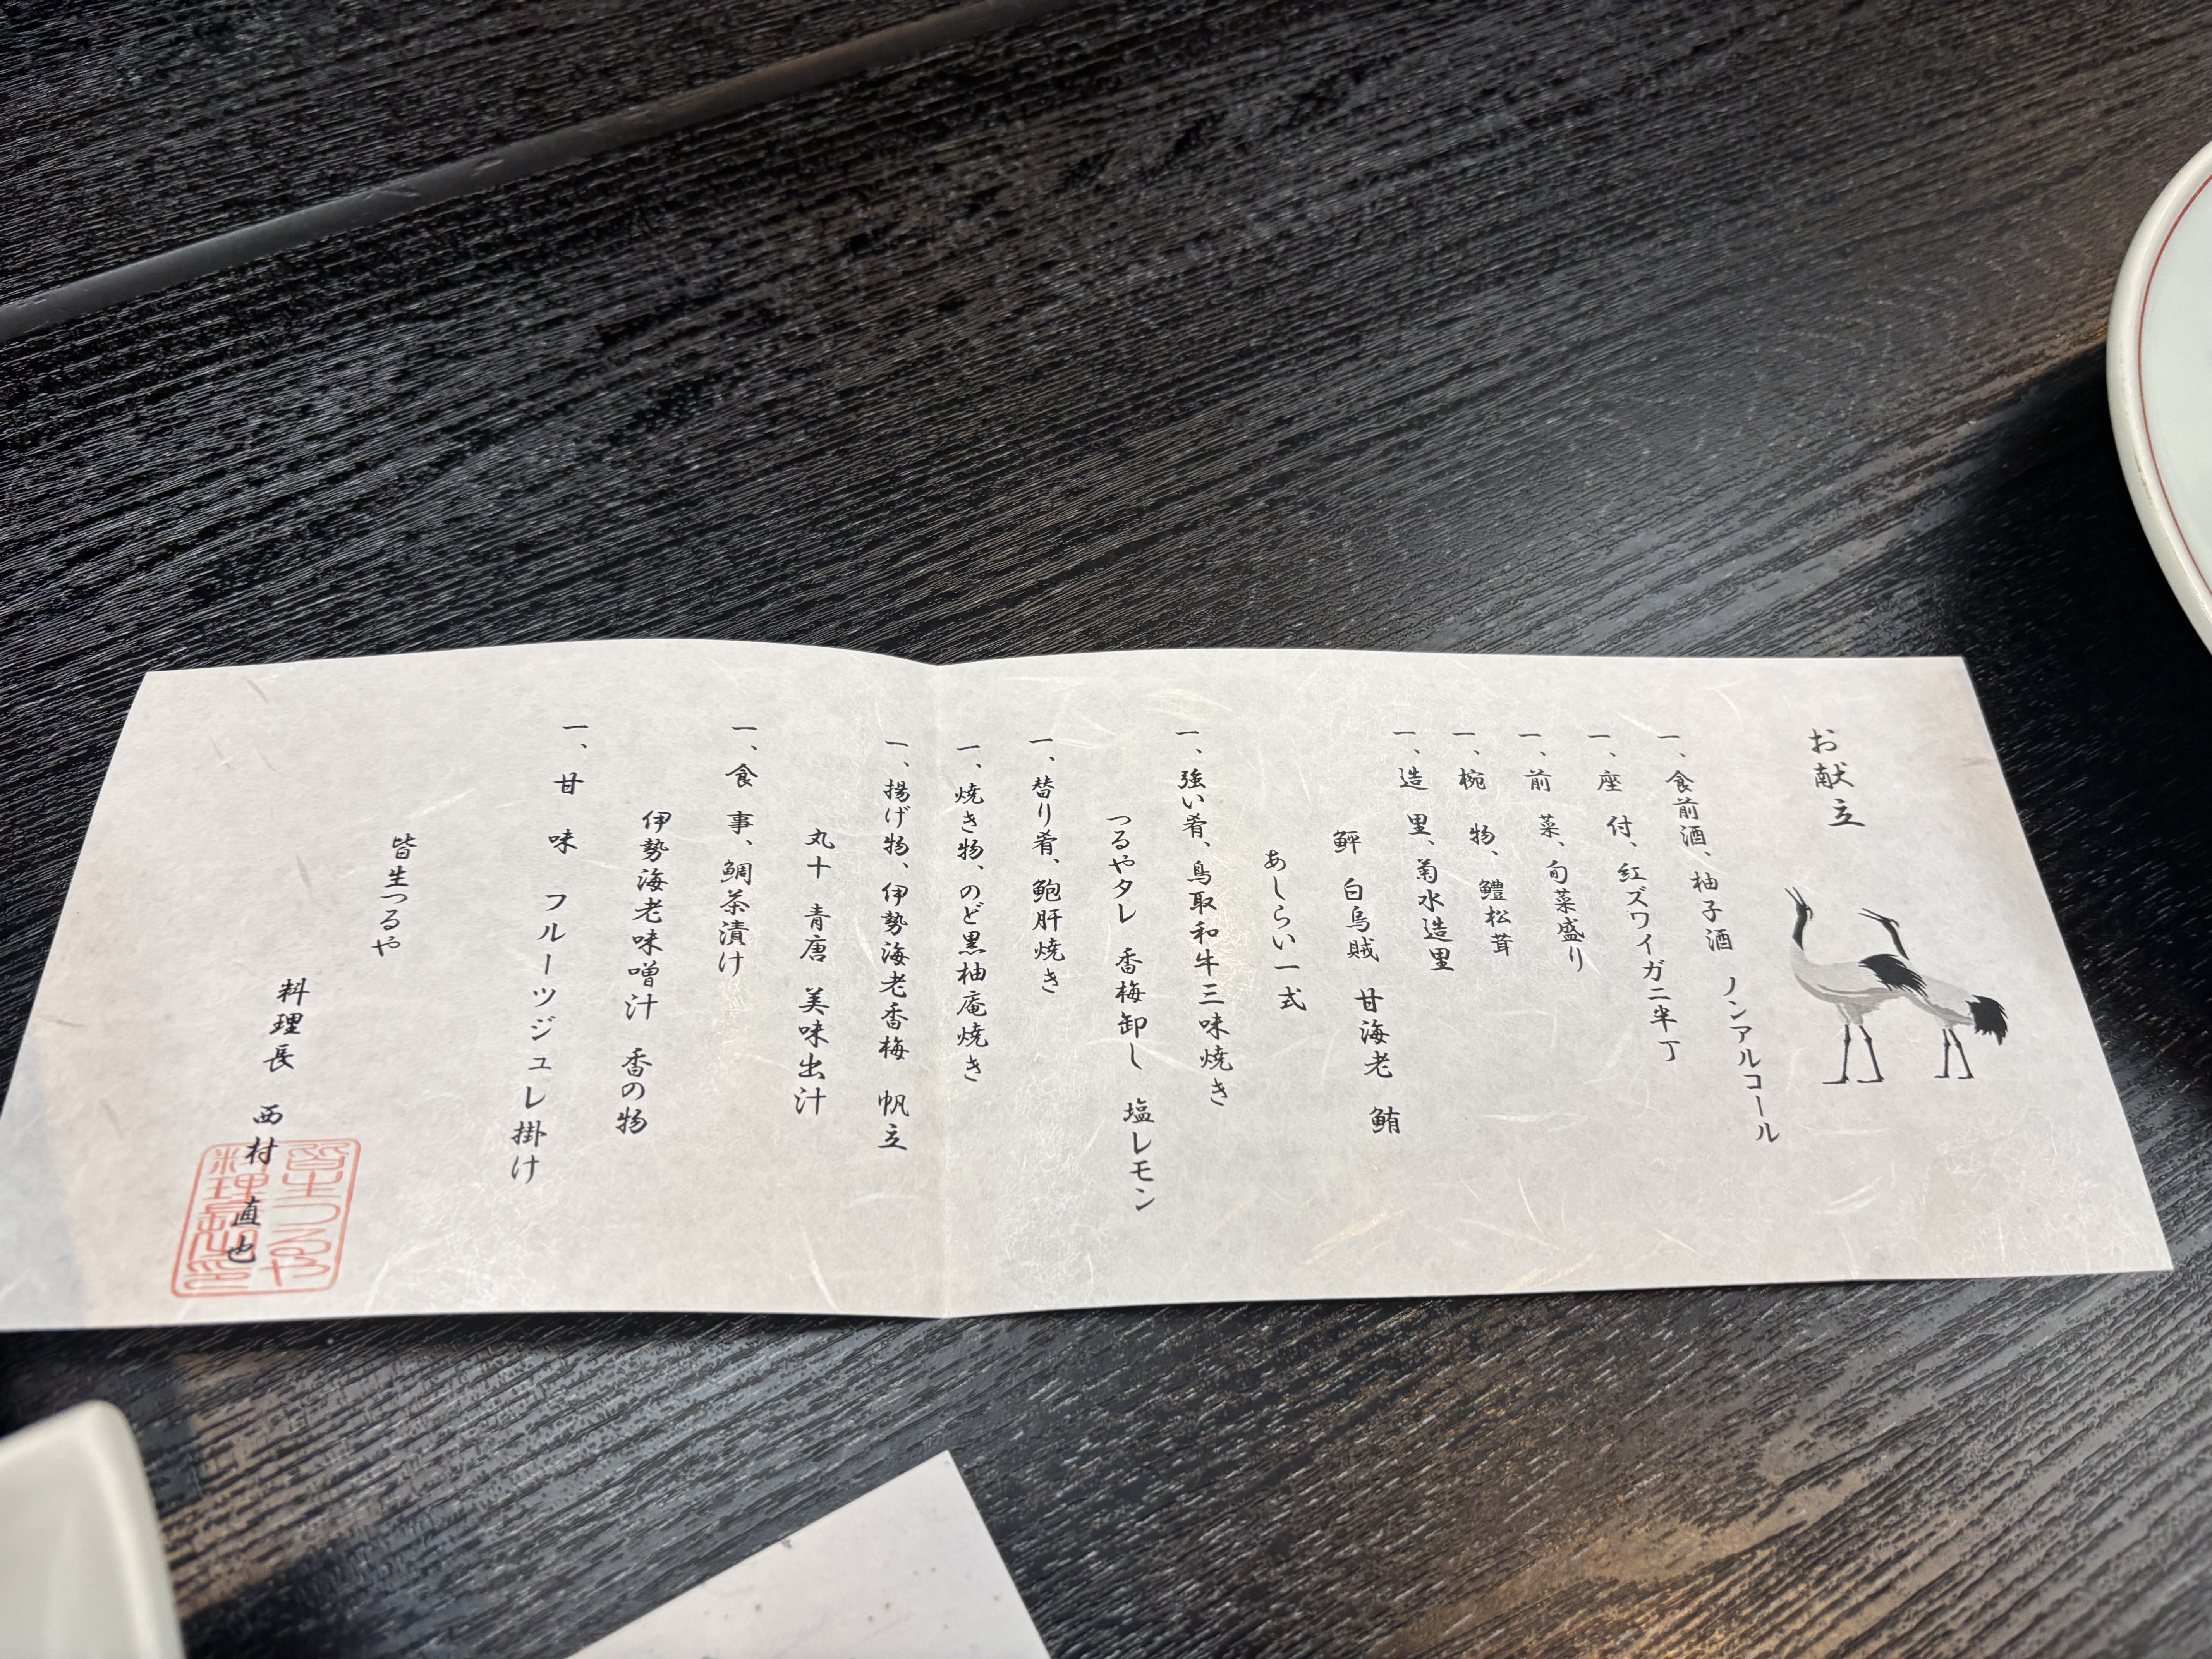 お献立
一、食前酒、柚子酒 ノンアルコール
一、座 付、紅ズワイガニ半丁
一、前 菜、旬菜盛り
一、椀 物、鱧松茸
一、造 里、菊水造里
鮃 白烏賊 甘海老 鮪
あしらい一式
一、強い肴、鳥取和牛三味焼き
つるやタレ 香梅卸し 塩レモン
一、替り肴、鮑肝焼き
一、焼き物、のど黒柚庵焼き
一、揚げ物、伊勢海老香梅 帆立
丸十 青唐 美味出汁
一、食 事、鯛茶漬け
伊勢海老味噌汁 香の物
一、甘 味 フルーツジュレ掛け
皆生つるや
料理長 西村 直也
皆生つるや